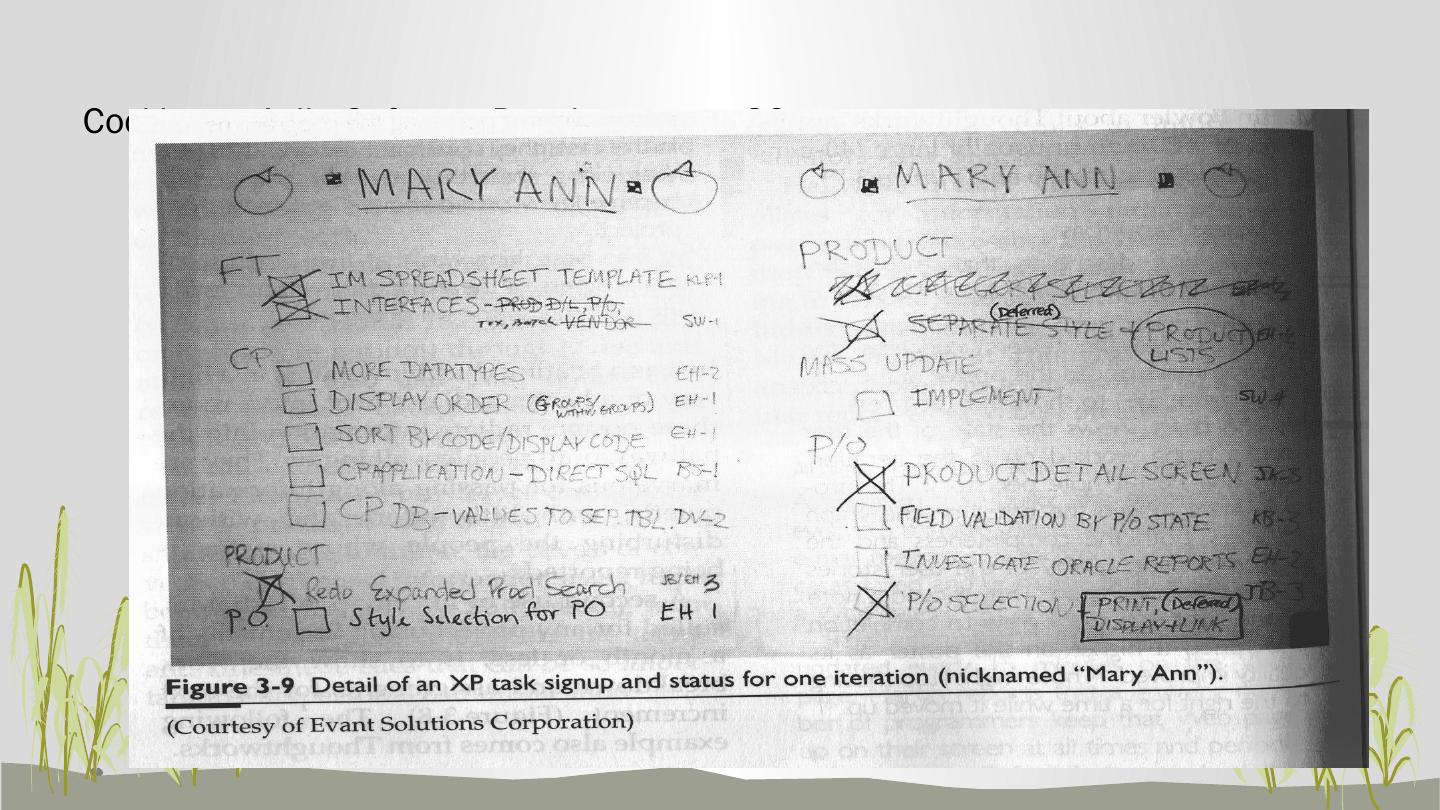 MARY ANN
FT
IM SPREADSHEET TEMPLATE KLP-1
INTERFACES - PROD D/L, P/O,
TTX, BATCH VENDOR SW-1
CP
MORE DATATYPES EH-2
DISPLAY ORDER (GROUPS/ WITHIN GROUPS) EH-1
SORT BY CODE/DISPLAY CODE EH-1
CP APPLICATION - DIRECT SQL BJ-1
CP DB - VALUES TO SEP. TBL. DV-2
PRODUCT
Redo Expanded Prod Search JB/EH 3
P.O. Style Selection for PO EH 1
MARY ANN
PRODUCT
(Deferred)
SEPARATE STYLE + PRODUCT LISTS
MASS UPDATE
IMPLEMENT SW-4
P/O
PRODUCT DETAIL SCREEN
FIELD VALIDATION BY P/O STATE KB-3
INVESTIGATE ORACLE REPORTS EH-2
P/O SELECTION + PRINT, (Deferred) JB-3
DISPLAY + LINK
Figure 3-9 Detail of an XP task signup and status for one iteration (nicknamed “Mary Ann”).
(Courtesy of Evant Solutions Corporation)